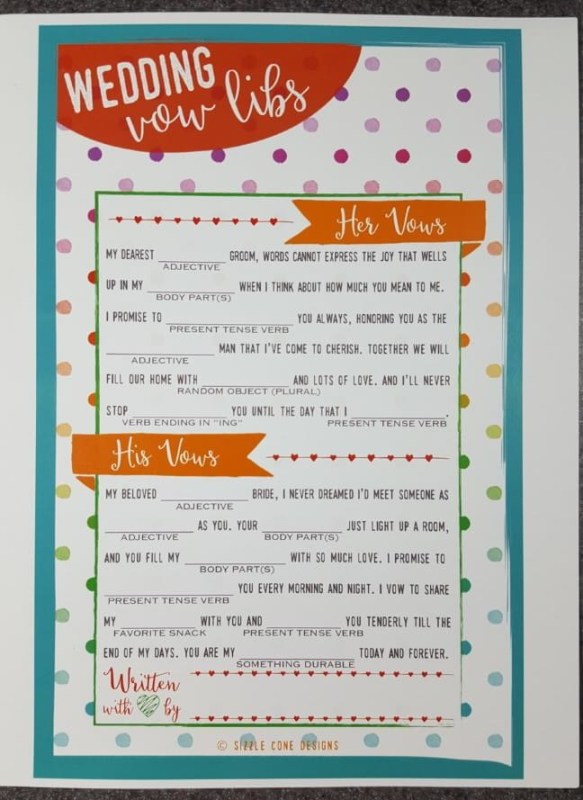 WEDDING
vow libs
Her Vows
MY DEAREST ____________ GROOM, WORDS CANNOT EXPRESS THE JOY THAT WELLS
ADJECTIVE
UP IN MY ____________ WHEN I THINK ABOUT HOW MUCH YOU MEAN TO ME.
BODY PART(S)
I PROMISE TO ____________ YOU ALWAYS, HONORING YOU AS THE
PRESENT TENSE VERB
____________ MAN THAT I'VE COME TO CHERISH. TOGETHER WE WILL
ADJECTIVE
FILL OUR HOME WITH ____________ AND LOTS OF LOVE. AND I'LL NEVER
RANDOM OBJECT (PLURAL)
STOP ____________ YOU UNTIL THE DAY THAT I ____________.
VERB ENDING IN "ING" PRESENT TENSE VERB
His Vows
MY BELOVED ____________ BRIDE, I NEVER DREAMED I'D MEET SOMEONE AS
ADJECTIVE
____________ AS YOU. YOUR ____________ JUST LIGHT UP A ROOM,
ADJECTIVE BODY PART(S)
AND YOU FILL MY ____________ WITH SO MUCH LOVE. I PROMISE TO
BODY PART(S)
____________ YOU EVERY MORNING AND NIGHT. I VOW TO SHARE
PRESENT TENSE VERB
MY ____________ WITH YOU AND ____________ YOU TENDERLY TILL THE
FAVORITE SNACK PRESENT TENSE VERB
END OF MY DAYS. YOU ARE MY ____________ TODAY AND FOREVER.
SOMETHING DURABLE
Written
with by
© SIZZLE CONE DESIGNS